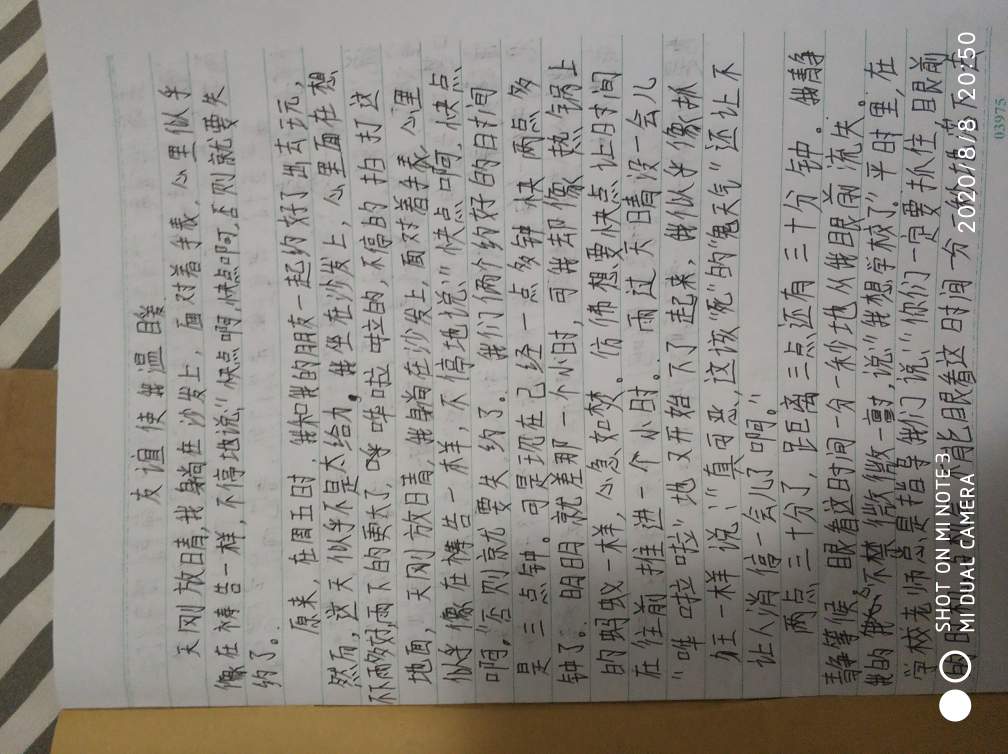 友谊使我温暖
天刚放晴,我躺在沙发上,面对着手表,心里似乎
像在祷告一样,不停地说:"快点啊,快点啊,否则就要失
约了。
原来,在周五时,我和我的朋友一起约好了出去玩,
然而,这天似乎不是太给力,我坐在沙发上,心里面在想
雨下的更大了,哗哗啦啦的,不停的拍打这
地面,天刚放晴,我躺在沙发上,面对着手表,心里
似乎像在祷告一样,不停地说:"快点啊,快点
啊,否则就要失约了。我们俩个约好的时间
是三点钟。可是现在已经一点多钟快两点多
钟了。明明就差那一个小时,可我却像热锅上
的蚂蚁一样,心急如焚。仿佛想要快点让时间
在往前推进一个小时。雨过天晴没一会儿
"哗啦啦"地又开始下了起来,我似乎像抓
狂一样说:"真可恶,这该死"的"鬼天气"还让不
让人消停一会儿了啊。"
两点三十分了,距离三点还有三十分钟。我静
静等候。眼看这时间一分一秒地从我眼前流失。
我的我不禁微微一嘟,说"我想学校了"平时里,在
学校老师总是指导我们说:"你们一定要抓住眼前
的时光
眼看这时间一分一秒
SHOT ON MI NOTE 3
MI DUAL CAMERA
2020/8/8 20:50
03975